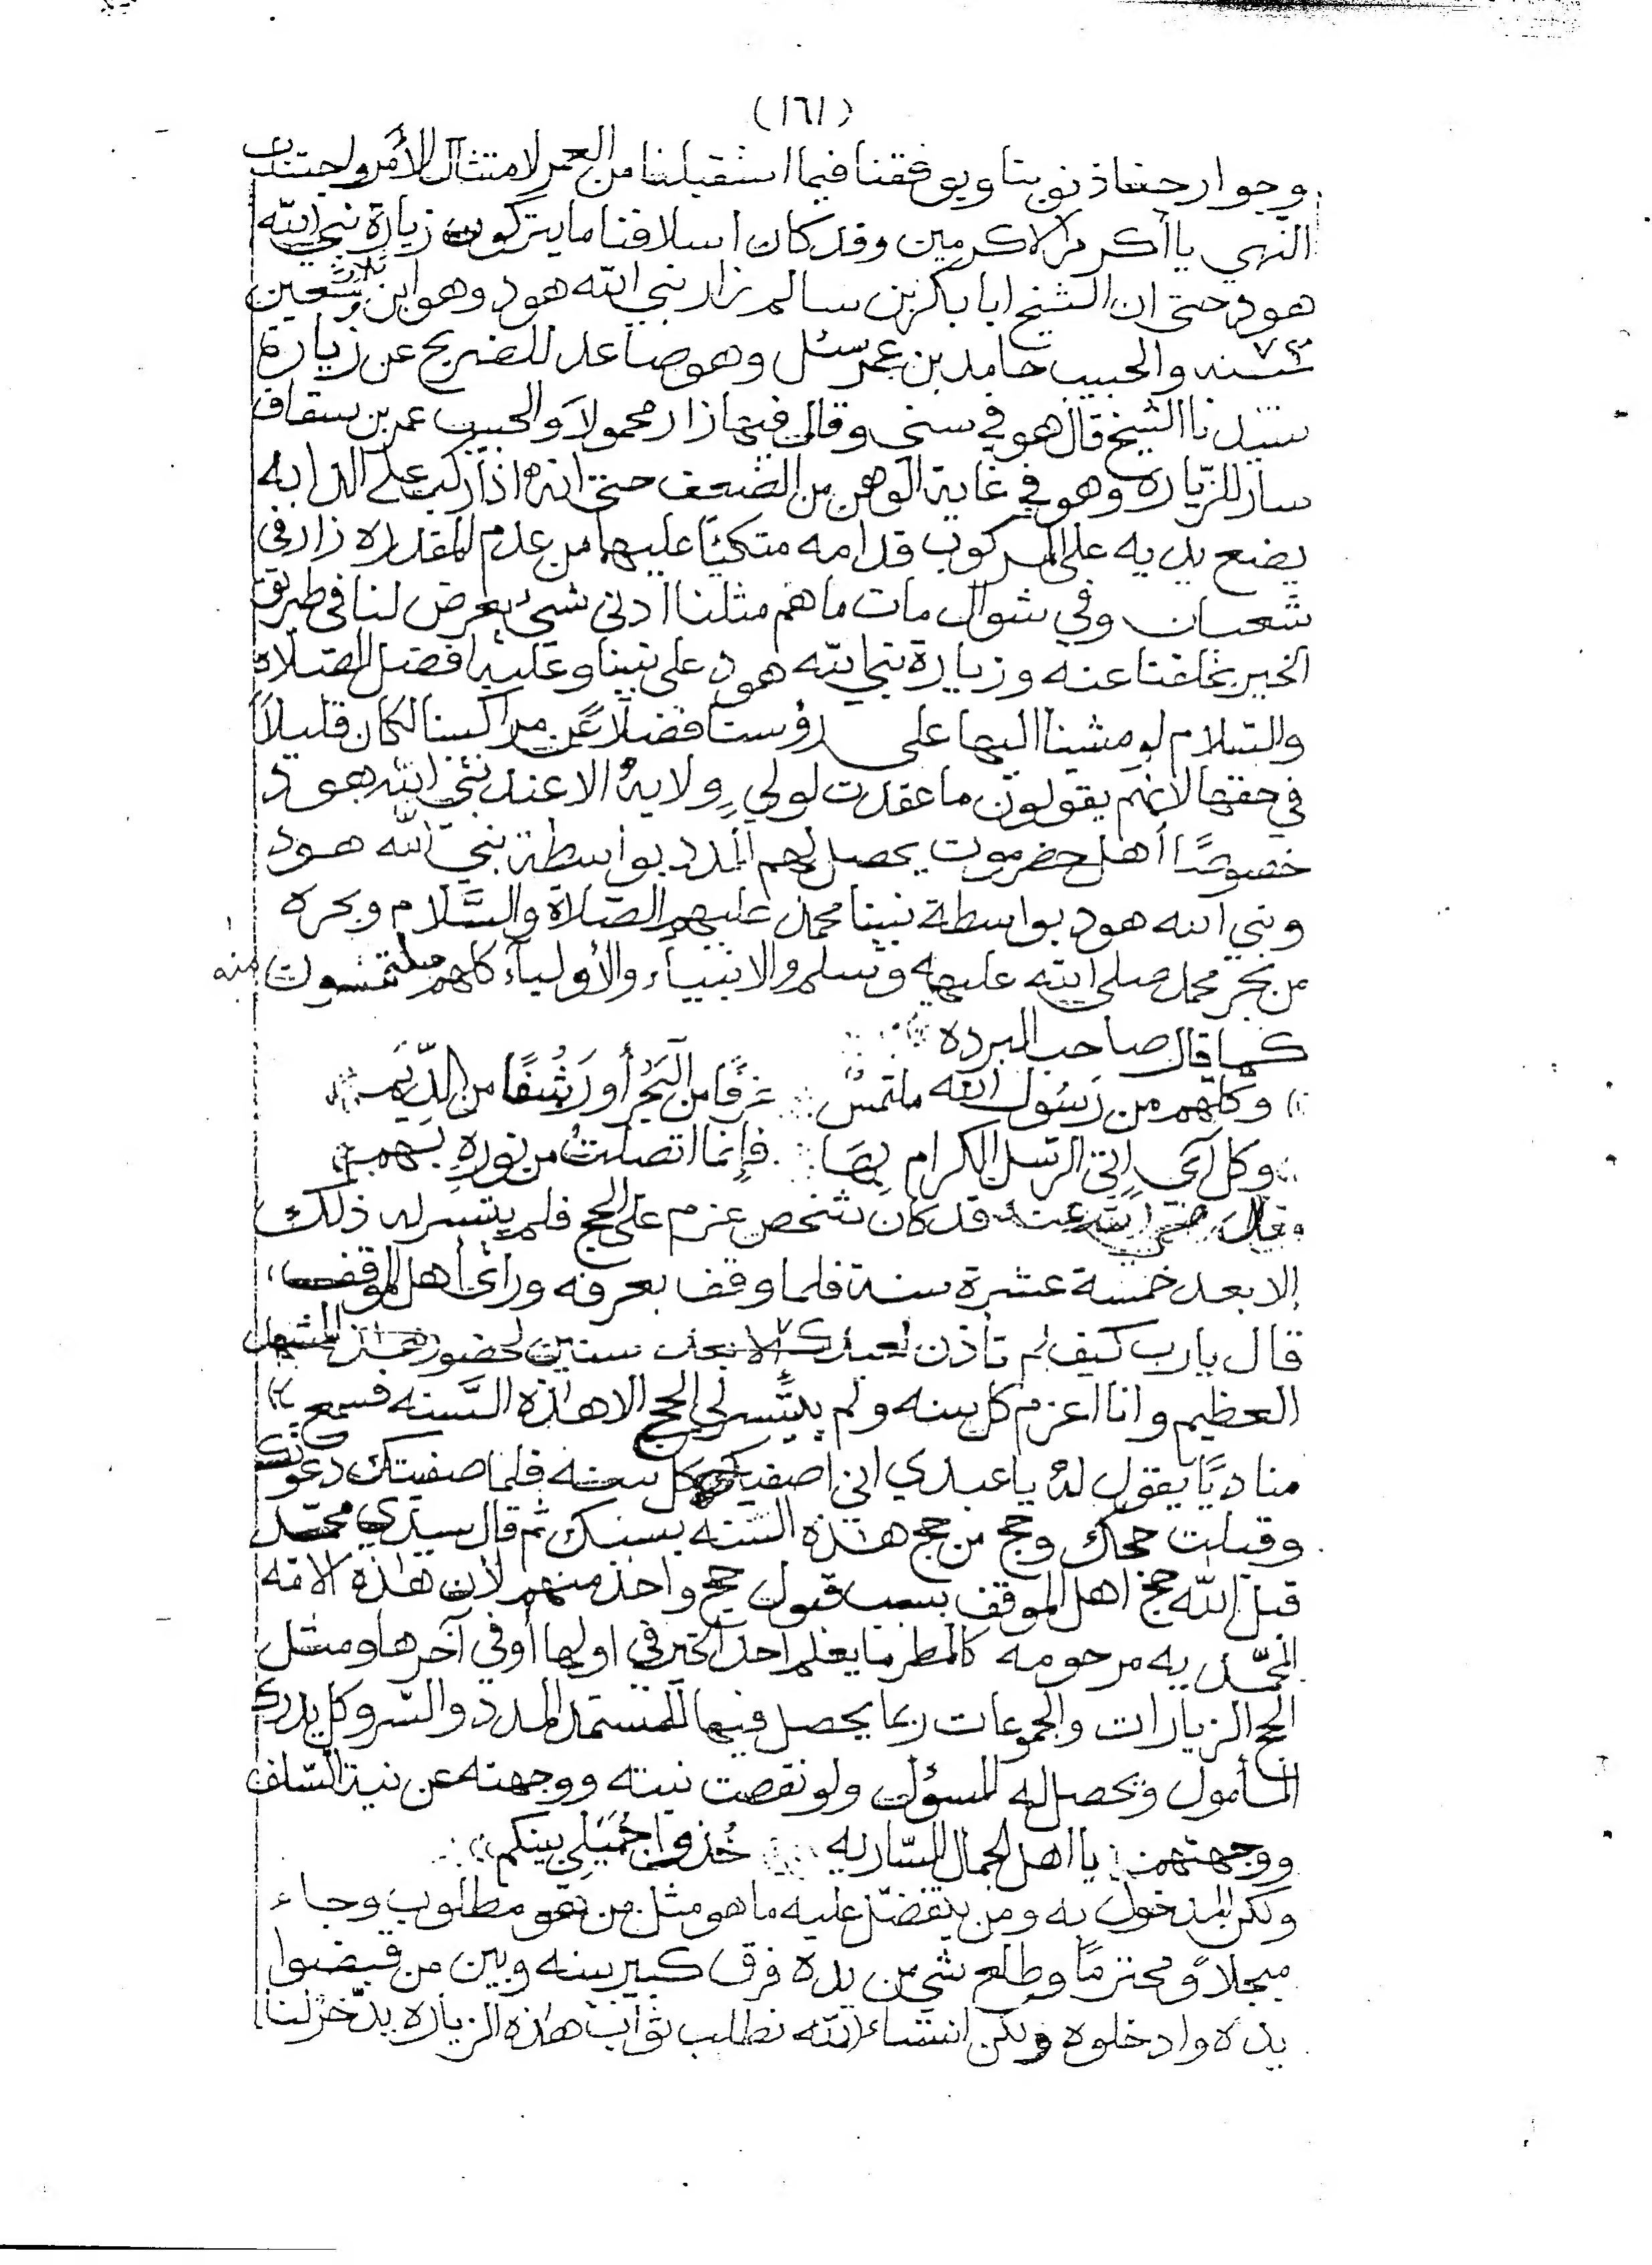 (١٦١)
وجوارحنا ذنوبنا ويوفقنا فيما استقبلنا من العمر لامتثال الأمر واجتناب
النهي يا أكرم الاكرمين وقد كان اسلافنا ما يتركون زيارة نبي الله
هود حتى ان الشيخ ابا بكر بن سالم زار نبي الله هود وهو ابن ثلاث وسبعين
٧٣ سنه والحبيب حامد بن عمر سئل وهو صاعد للضريح عن زيارة
سيدنا الشيخ قال هو في سني وقال فيها زار محمولاً والحبيب عمر بن سقاف
سار للزياره وهو في غاية الوهن من الضعف حتى انه اذا ركب على الدابه
يضع يديه على المركوب قدامه متكئاً عليها من عدم المقداره زار في
شعبان وفي شوال مات ما هم مثلنا أدنى شيء يعرض لنا في طريق
الخير تخلفنا عنه وزيارة نبي الله هود على نبينا وعليه افضل الصلاة
والسلام لو مشينا اليها على رؤسنا فضلاً عن مراكبنا لكان قليلاً
في حقها لانهم يقولون ما عقدت لولي ولاية الا عند نبي الله هود
خصوصًا أهل حضرموت يحصل لهم المدد بواسطة نبي الله هود
ونبي الله هود بواسطة نبينا محمد عليهم الصلاة والسَّلام وبحره
من بحر محمد صلى الله عليه وسلم والانبياء والأولياء كلهم ملتمسون منه
كما قال صاحب البرده
وكلهم من رَسُول الله ملتمسٌ غرفًا من البَحْرِ أو رَشْفًا من الدِّيَمِ
وكل آيٍ اتى الرسل الكرام بِهَا فإنما اتصلت من نورهِ بهم
وقال رضي الله عنه قد كان شخص عزم على الحج فلم يتيسر له ذلك
إلا بعد خمسة عشرة سنة فلما وقف بعرفه ورأى أهل الموقف
قال يارب كيف لم تأذن لعبدك الا بعد سنين لحضور هذا المشهد
العظيم وانا اعزم كل سنه ولم يتيسر لي الحج الا هذه السَّنه فسمع
مناديًا يقول لهُ يا عبدي اني اصفيك كل سنه فلما صفيتك دعوتك
وقبلت حجك وحج من حج هذه السنه بسببك ثم قال سيدي محمد
قبل الله حج اهل الموقف بسبب قبول حج واحد منهم لأن هذه الامه
المحمديه مرحومه كالمطر ما يعلم احد الخير في اولها أو في آخرها ومثل
الحج الزيارات والجموعات ربما يحصل فيها للمستمد المدد والسر وكل يدرك
المأمول ويحصل له المسؤل ولو نقصت نيته ووجهته عن نية السلف
ووجهتهم يا اهل الجمال الساريه خُذوا جُمَيلي بينكم
ولكن المدخول به ومن يتفضل عليه ما هو مثل من هو مطلوب وجاء
مبجلاً ومحترمًا وطلع شي من يده فرق كبير بينه وبين من قبضوا
يده وادخلوه ولكن انشاء الله نطلب ثواب هذه الزياره يدّخر لنا